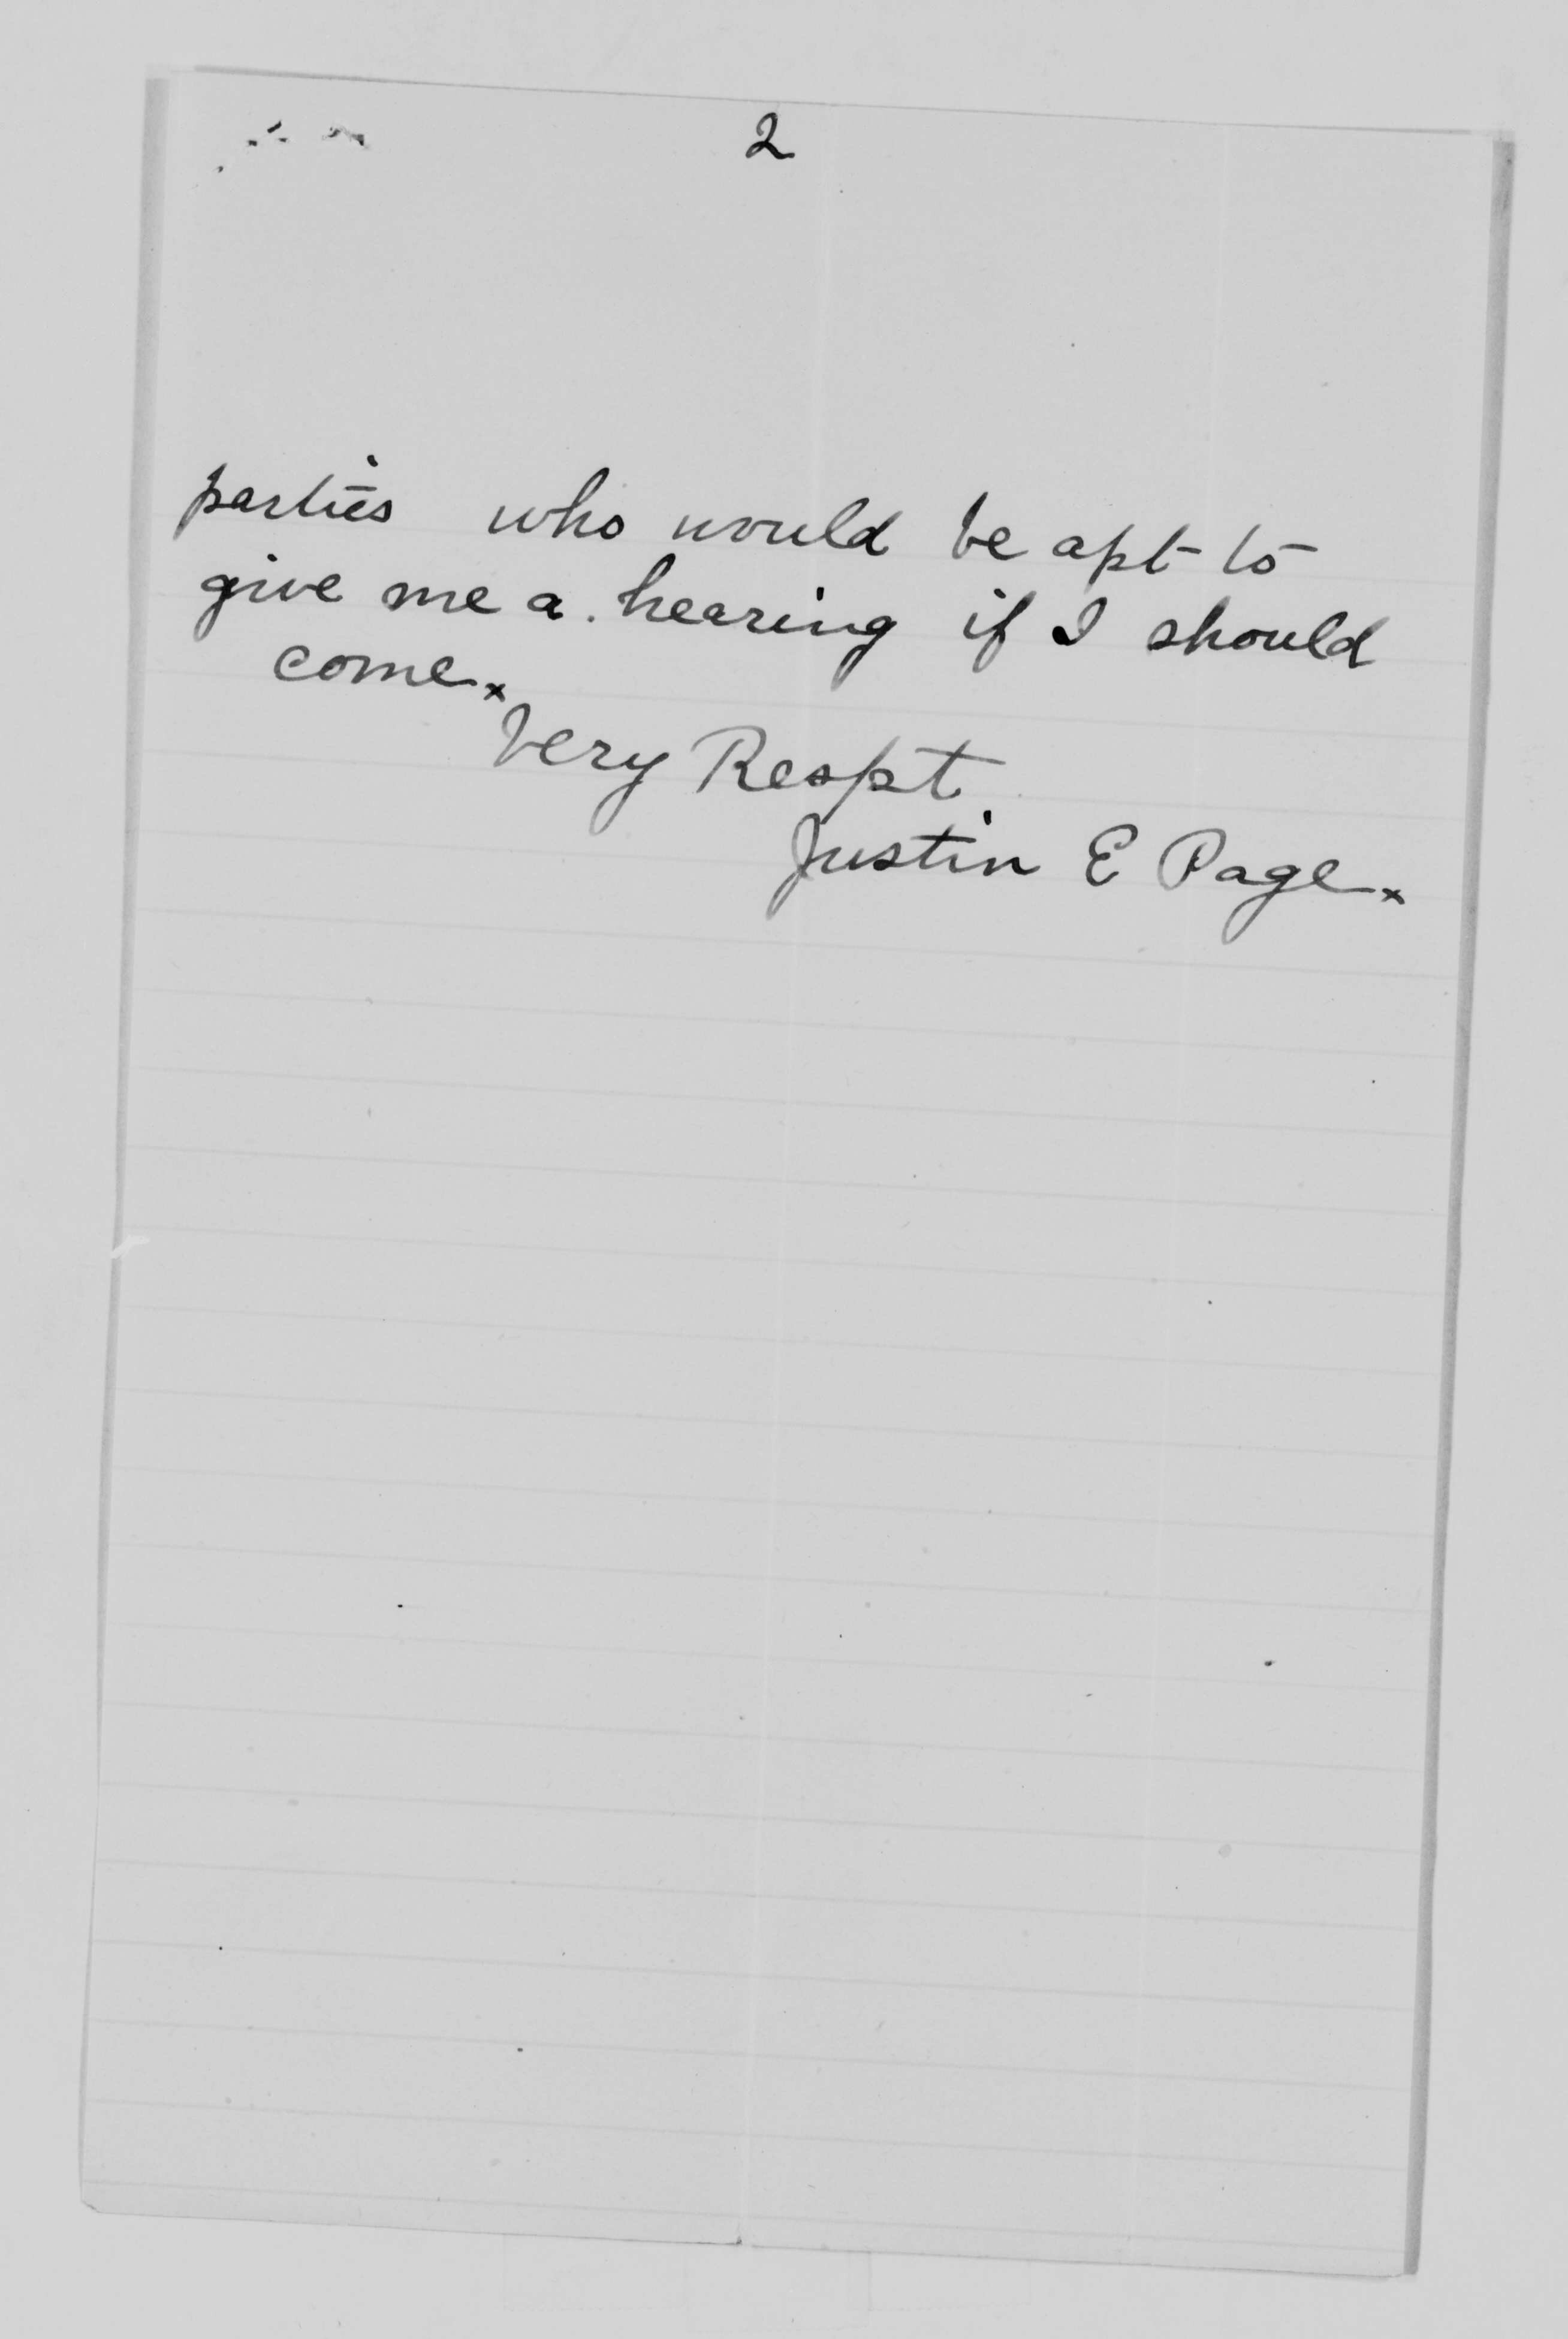 2
parties who would be apt to
give me a hearing if I should
come.
Very Respt.
Justin E Page.